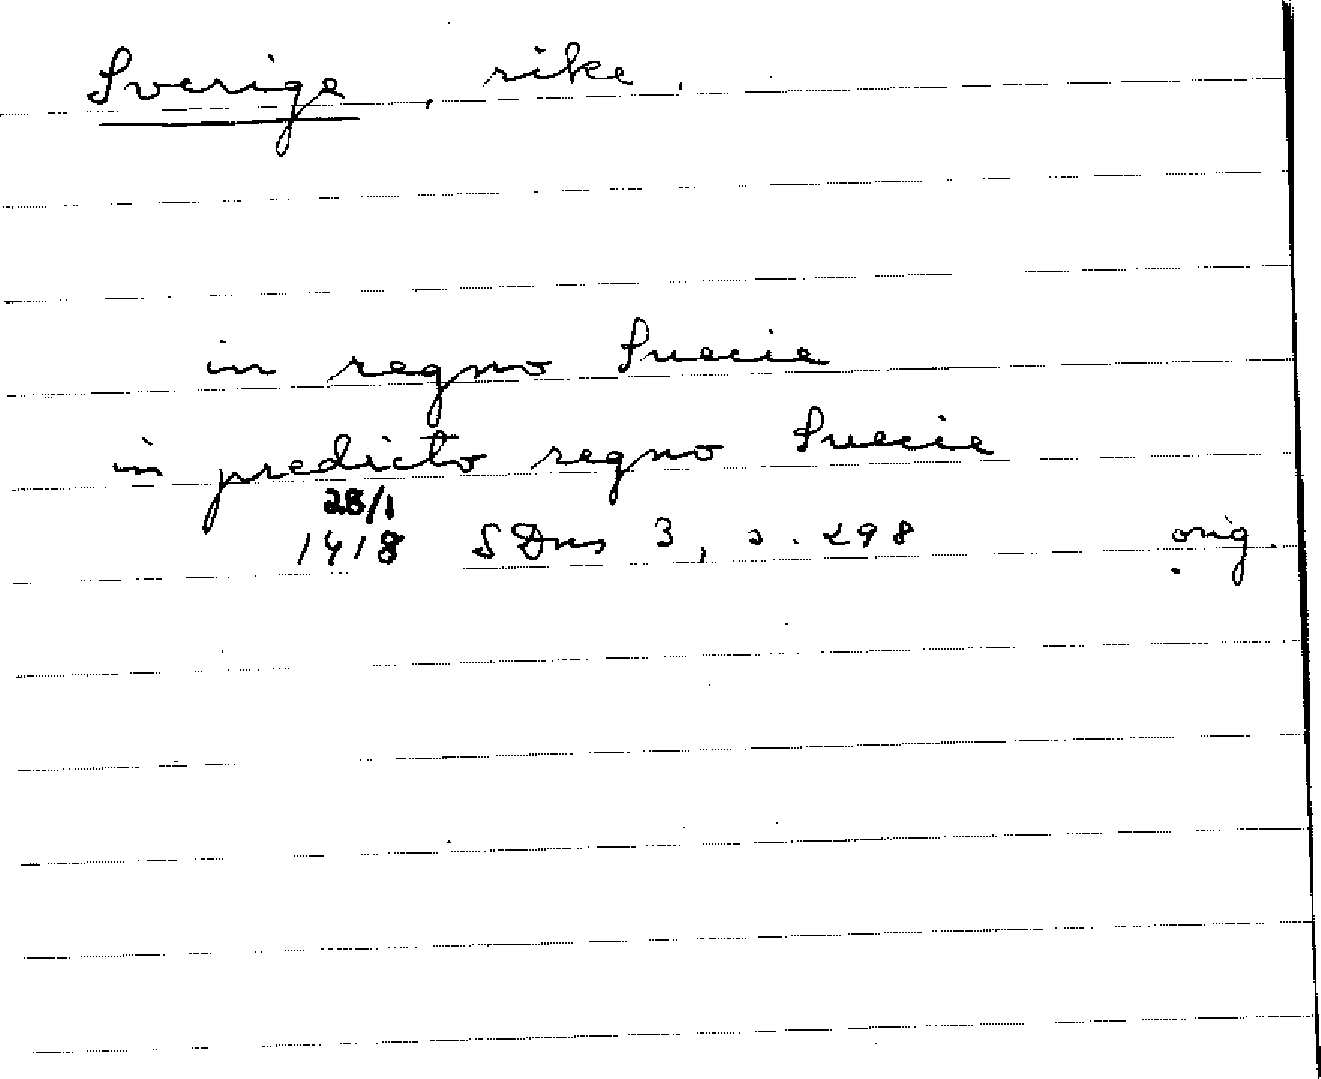 Sverige, rike.
in regno Suecie
in predicto regno Suecie
28/1
1418 SDns 3, s. 298 orig.